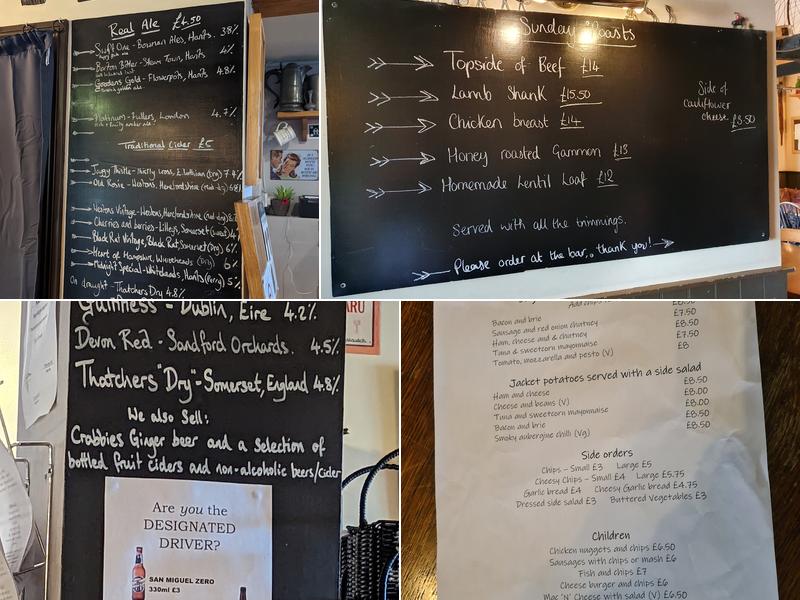 Real Ale £4.50
Swift One - Bowman Ales, Hants. 3.8%
Barton Bitter - Steam Town, Hants 4%
Goodens Gold - Flowerpots, Hants 4.8%
Platinum - Fullers, London 4.7%
Traditional Cider £5
Juggy Thistle - Thistly Cross, E. Lothian (Dry) 7.4%
Old Rosie - Westons, Herefordshire (med dry) 6.8%
Westons Vintage - Westons, Herefordshire (med dry) 8.2
Cherries and berries - Lilleys, Somerset (sweet) 4%
Black Rat Vintage, Black Rat, Somerset (Dry) 6%
Heart of Hampshire, Whiteheads (Dry) 6%
Midnight Special - Whiteheads, Hants (Perry) 5%
On draught - Thatchers Dry 4.8%
Sunday Roasts
Topside of Beef £14
Lamb Shank £15.50
Chicken breast £14
Honey roasted Gammon £13
Homemade Lentil Loaf £12
Side of
cauliflower
cheese £3.50
Served with all the trimmings.
Please order at the bar, thank you!
Guinness - Dublin, Eire 4.2%
Devon Red - Sandford Orchards. 4.5%
Thatchers "Dry" - Somerset, England 4.8%
We also Sell:
Crabbies Ginger beer and a selection of
bottled fruit ciders and non-alcoholic beers/cider
Are you the
DESIGNATED
DRIVER?
SAN MIGUEL ZERO
330ml £3
ARU
Add chips
£6.50
Bacon and brie £7.50
Sausage and red onion chutney £8.50
Ham, cheese and & chutney £7.50
Tuna & sweetcorn mayonnaise £8
Tomato, mozzarella and pesto (V)
Jacket potatoes served with a side salad
Ham and cheese £8.50
Cheese and beans (V) £8.00
Tuna and sweetcorn mayonnaise £8.00
Bacon and brie £8.50
Smoky aubergine chilli (Vg) £8.50
Side orders
Chips - Small £3 Large £5
Cheesy Chips - Small £4 Large £5.75
Garlic bread £4 Cheesy Garlic bread £4.75
Dressed side salad £3 Buttered Vegetables £3
Children
Chicken nuggets and chips £6.50
Sausages with chips or mash £6
Fish and chips £7
Cheese burger and chips £6
Mac 'N' Cheese with salad (V) £6.50